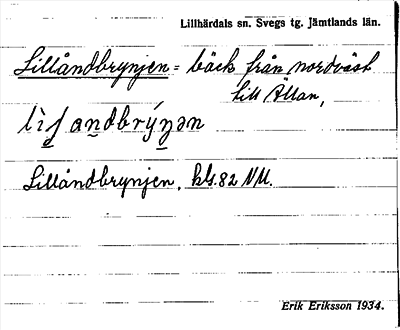 Lillhärdals sn. Svegs tg. Jämtlands län.
Lillåndbrynjen = bäck från nordväst
till Ällan,
Lillåndbrynjen, kbl. 82 NU.
Erik Eriksson 1934.